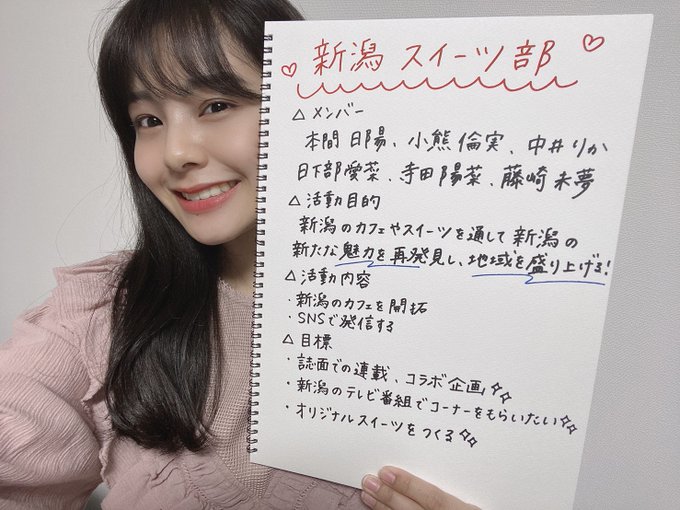 新潟 スイーツ部
△ メンバー
本間日陽、小熊倫実、中井りか
日下部愛菜、寺田陽菜、藤崎未夢
△ 活動目的
新潟のカフェやスイーツを通して新潟の
新たな魅力を再発見し、地域を盛り上げる!
△ 活動内容
・新潟のカフェを開拓
・SNSで発信する
△ 目標
・誌面での連載、コラボ企画
・新潟のテレビ番組でコーナーをもらいたい
・オリジナルスイーツをつくる